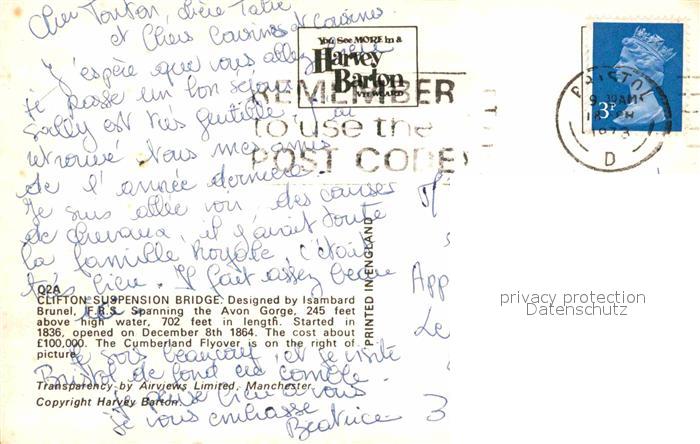 Cher Tonton, chère Tatie
et Chers Cousines et Cousins
J'espère que vous allez bien
je passe un bon séjour
Sally est très gentille j'ai
retrouvé tous mes amis
de l'année dernière.
Je suis allée voir des courses
de chevaux, il y avait toute
la famille Royale, c'était
très bien. Il fait assez beau
Je sors beaucoup et je visite
Bristol de fond en comble.
je pense bien à vous
je vous embrasse
Béatrice
You See MORE in a
Harvey
Barton
VIEWCARD
REMEMBER
to use the
POST CODE
BRISTOL
1973
D
3P
Q2A
CLIFTON SUSPENSION BRIDGE. Designed by Isambard
Brunel, F.R.S. Spanning the Avon Gorge, 245 feet
above high water, 702 feet in length. Started in
1836, opened on December 8th 1864. The cost about
£100,000. The Cumberland Flyover is on the right of
picture.
Transparency by Airviews Limited, Manchester.
Copyright Harvey Barton.
PRINTED IN ENGLAND
M
App
Le
3
privacy protection
Datenschutz